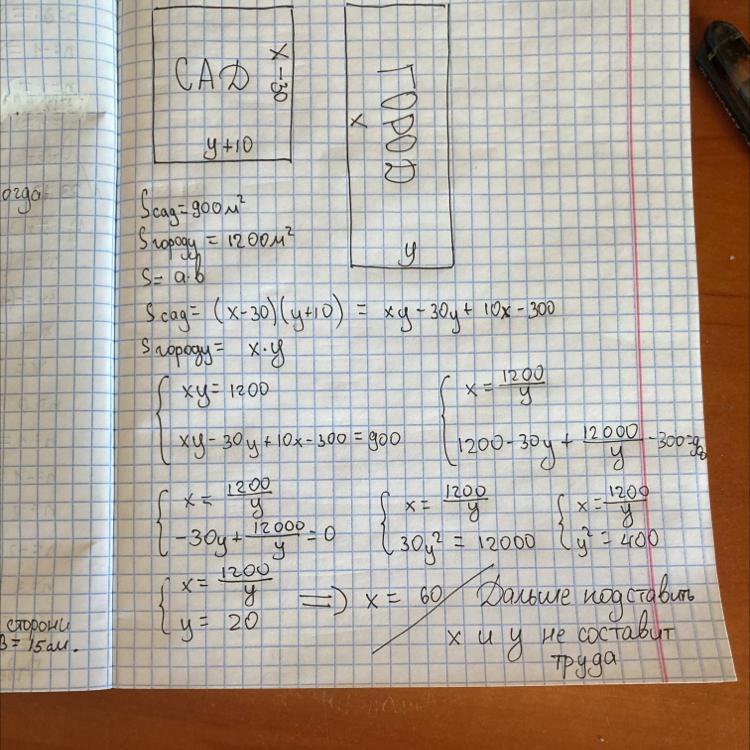 САД
x-30
y+10
ГОРОД
x
y
огда
Sсад=900м²
Sгороду = 1200м²
S= a·b
Sсад= (x-30)(y+10) = xy-30y+10x-300
Sгороду= x·y
{ xy=1200
xy-30y+10x-300=900
{ x=1200/y
1200-30y+12000/y-300=
{ x=1200/y
-30y+12000/y=0
{ x=1200/y
30y²=12000
{ x=1200/y
y²=400
{ x=1200/y
y= 20
=> x= 60
Дальше подставить
x и y не составит
труда
сторони
= 15см.